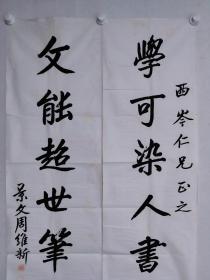 西岑仁兄正之
學可染人書
文能超世筆
景文周維新